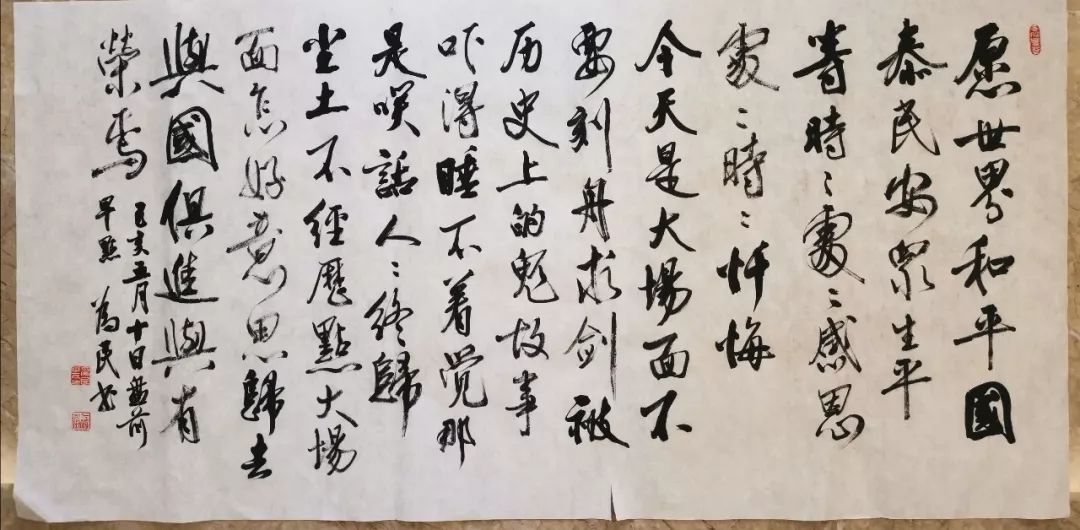 愿世界和平國
泰民安眾生平
等時〻處〻感恩
處〻時〻忏悔
今天是大場面不
要刻舟求剑被
历史上的鬼故事
吓得睡不着觉那
是咲話人〻终歸
尘土不經歷點大場
面怎好意思歸去
與國俱進與有
榮焉
己亥五月十日
早點 為民书